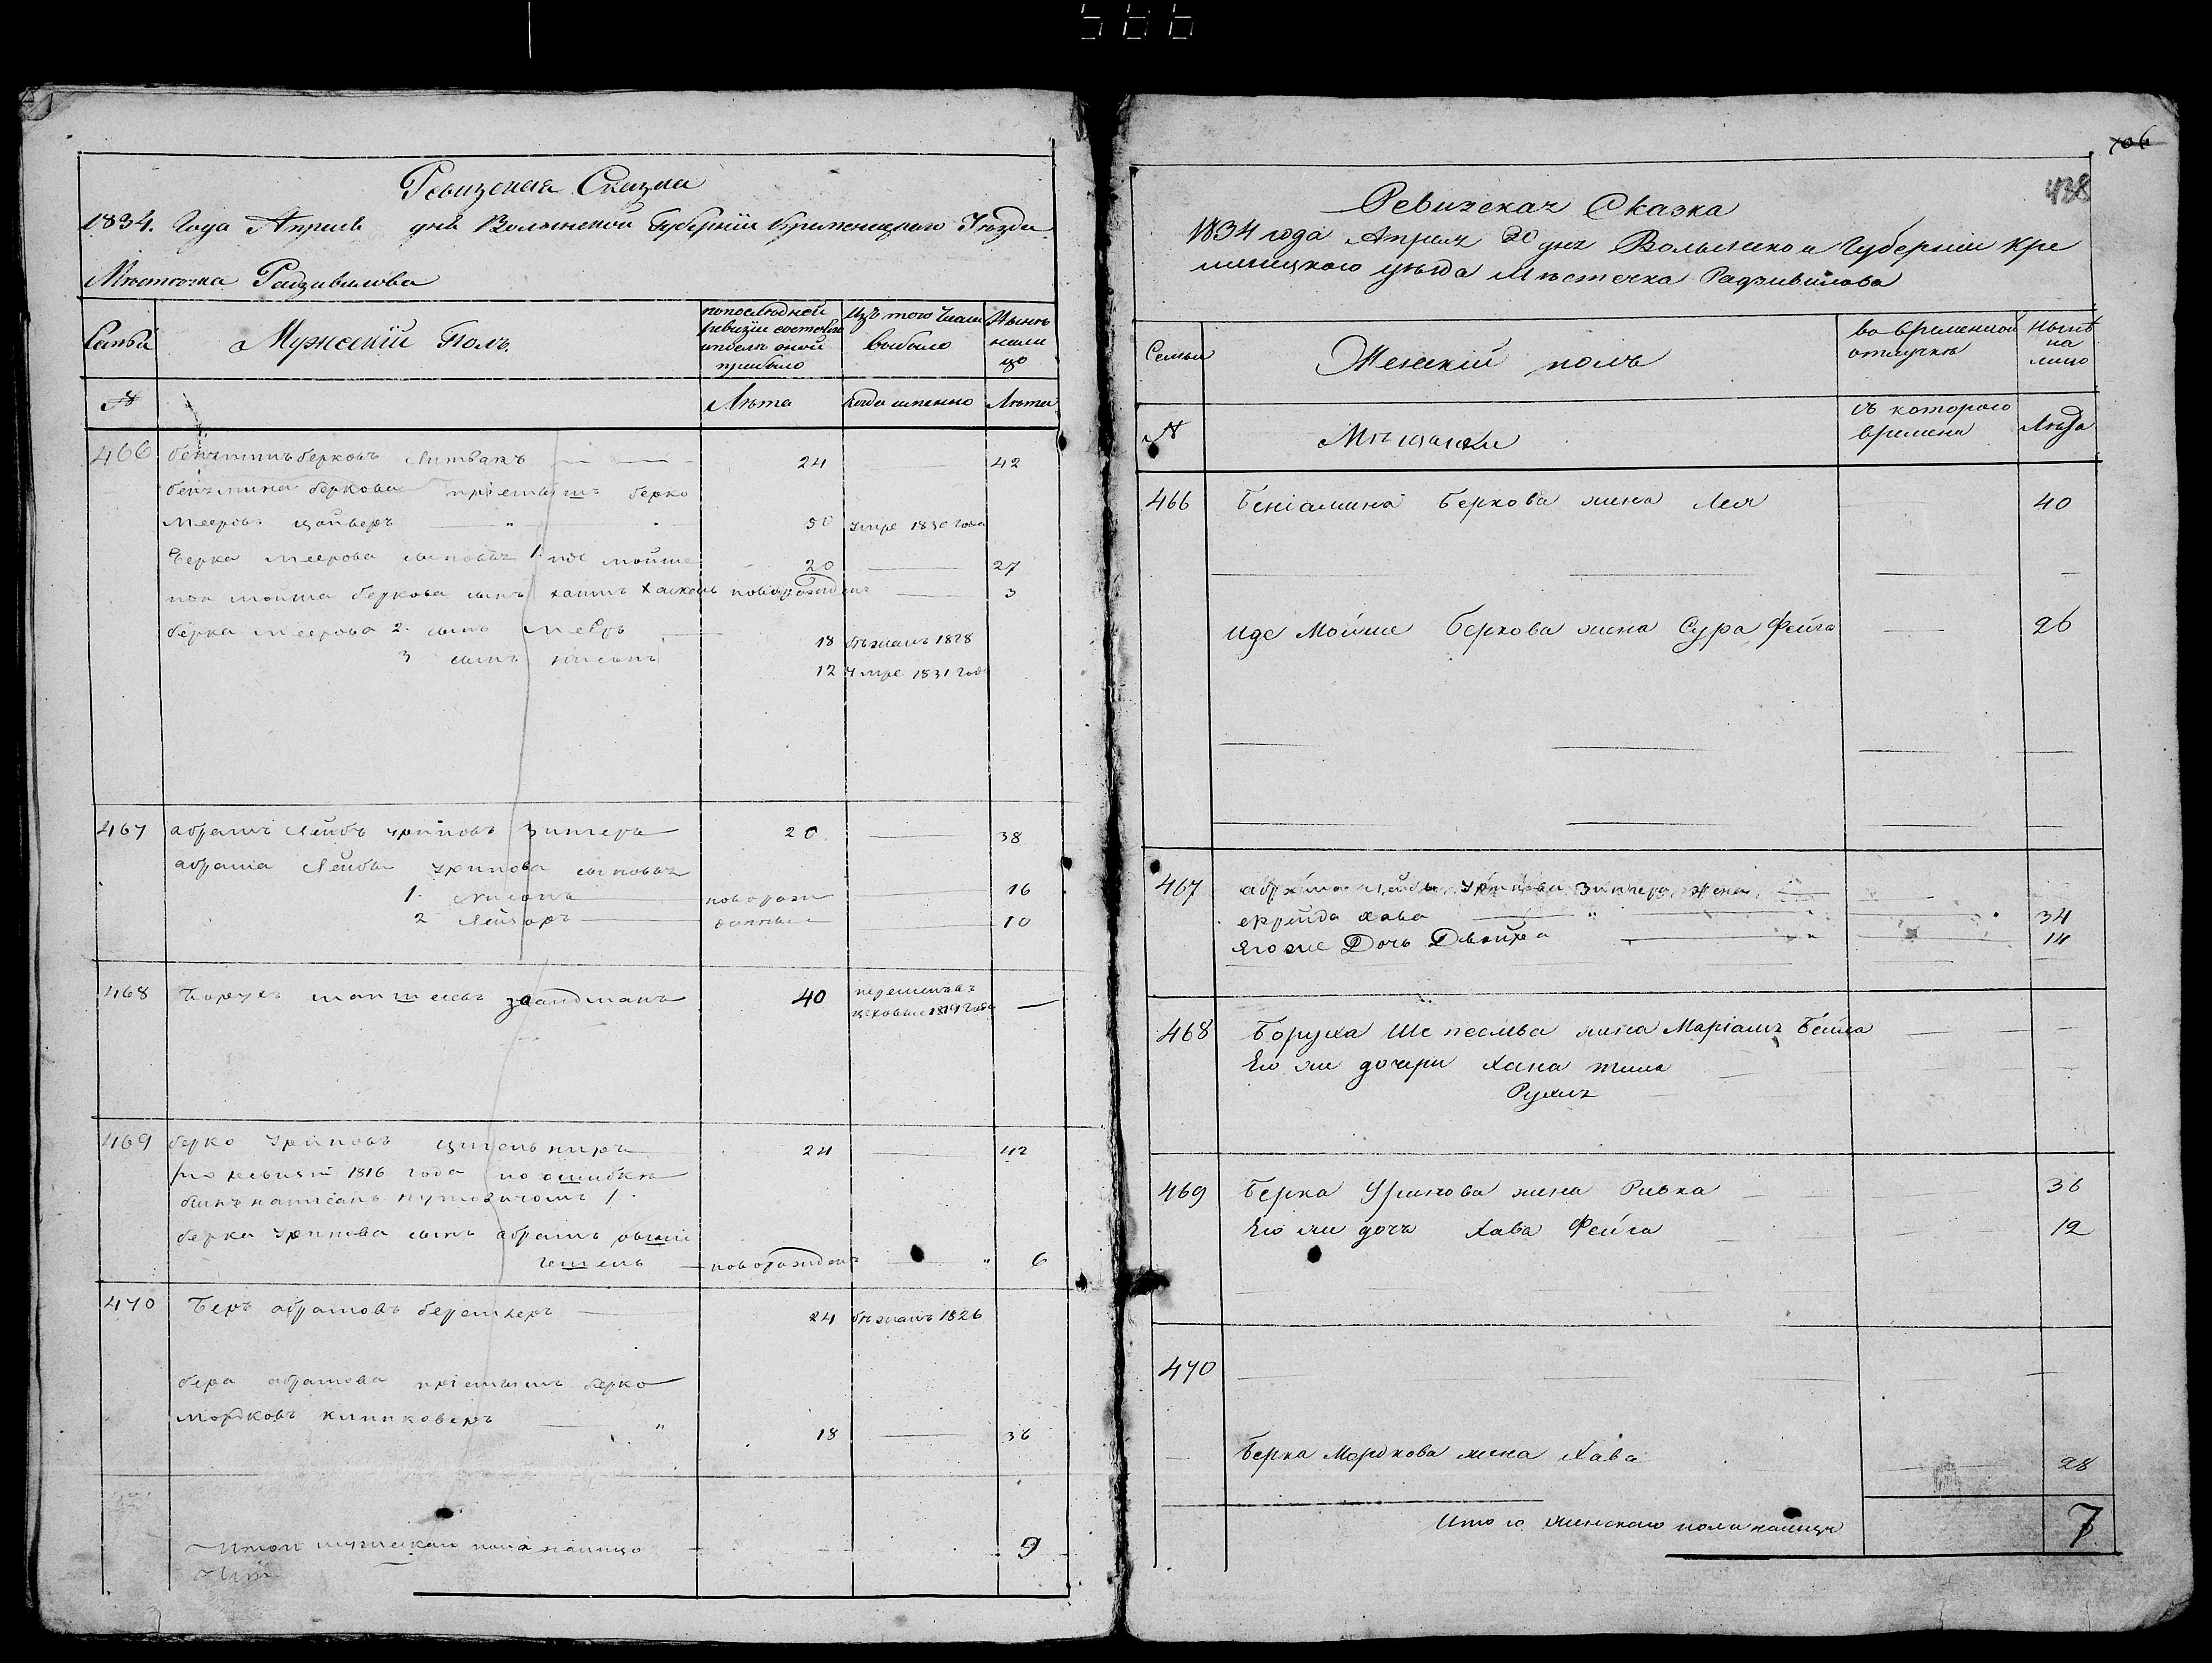 566
Ревизская Сказка
1834. Года Апреля дня Волынской Губернии Кременецкаго Уезда
Местечка Радзивилова
Семьи
Мужеский Полъ.
по последней ревизии состояло и после оной прибыло
Изъ того числа выбыло
Ныне на лицо
№
Лета
Когда именно
Лета
466 беньминъ берковъ Литвакъ 24 42
беньмина беркова пріемышъ берко
мееровъ 50 умре 1830 года
берка меерова сыновья 1. иде мойше 20 27
иде мойша беркова сынъ хаимъ хаскель новорожденъ 3
берка меерова 2. сынъ мееръ 18 бежалъ 1828
3 сынъ нисонъ 12 умре 1831 года
467 абрамъ Лейбъ уриновъ Зингеръ 20 38
абрама Лейбы уринова сыновья
1. нисонъ новорож 16
2 Лейзоръ денные 10
468 Борухъ зандманъ 40 перешелъ въ
цеховые 1819 года —
469 берко уриновъ 24 42
/по ревизіи 1816 года по ошибке
былъ написанъ /.
берка уринова сынъ абрамъ
новорожденъ 6
470 Беръ абрамовъ 24 бежалъ 1826
бера абрамова пріемышъ берко
мордковъ 18 36
Итого мужескаго пола налицо 9
106
438
Ревизская Сказка
1834 года Апреля 20 дня Волынской Губерніи Кре
менецкого уезда Местечка Радзивилова
Семьи
Женскій полъ
во временной отлучке
Ныне на лицо
№
Мещанки
съ которого времени
Лета
466 Беніамина Беркова жена Лея 40
Иде Мойше Беркова жена Сура Фейга 26
467 абрама Лейбы Уринова Зингера жена
Фрейда Хава 34
Его же Дочь Двойра 14
468 Боруха жена Маріамъ Бейла
Его же дочери Хана
Рухля
469 Берка Уринова жена Ривка 36
Его же дочь Хава Фейга 12
470
Берка Мордкова жена Хава 28
Итого женскаго пола налицо 7